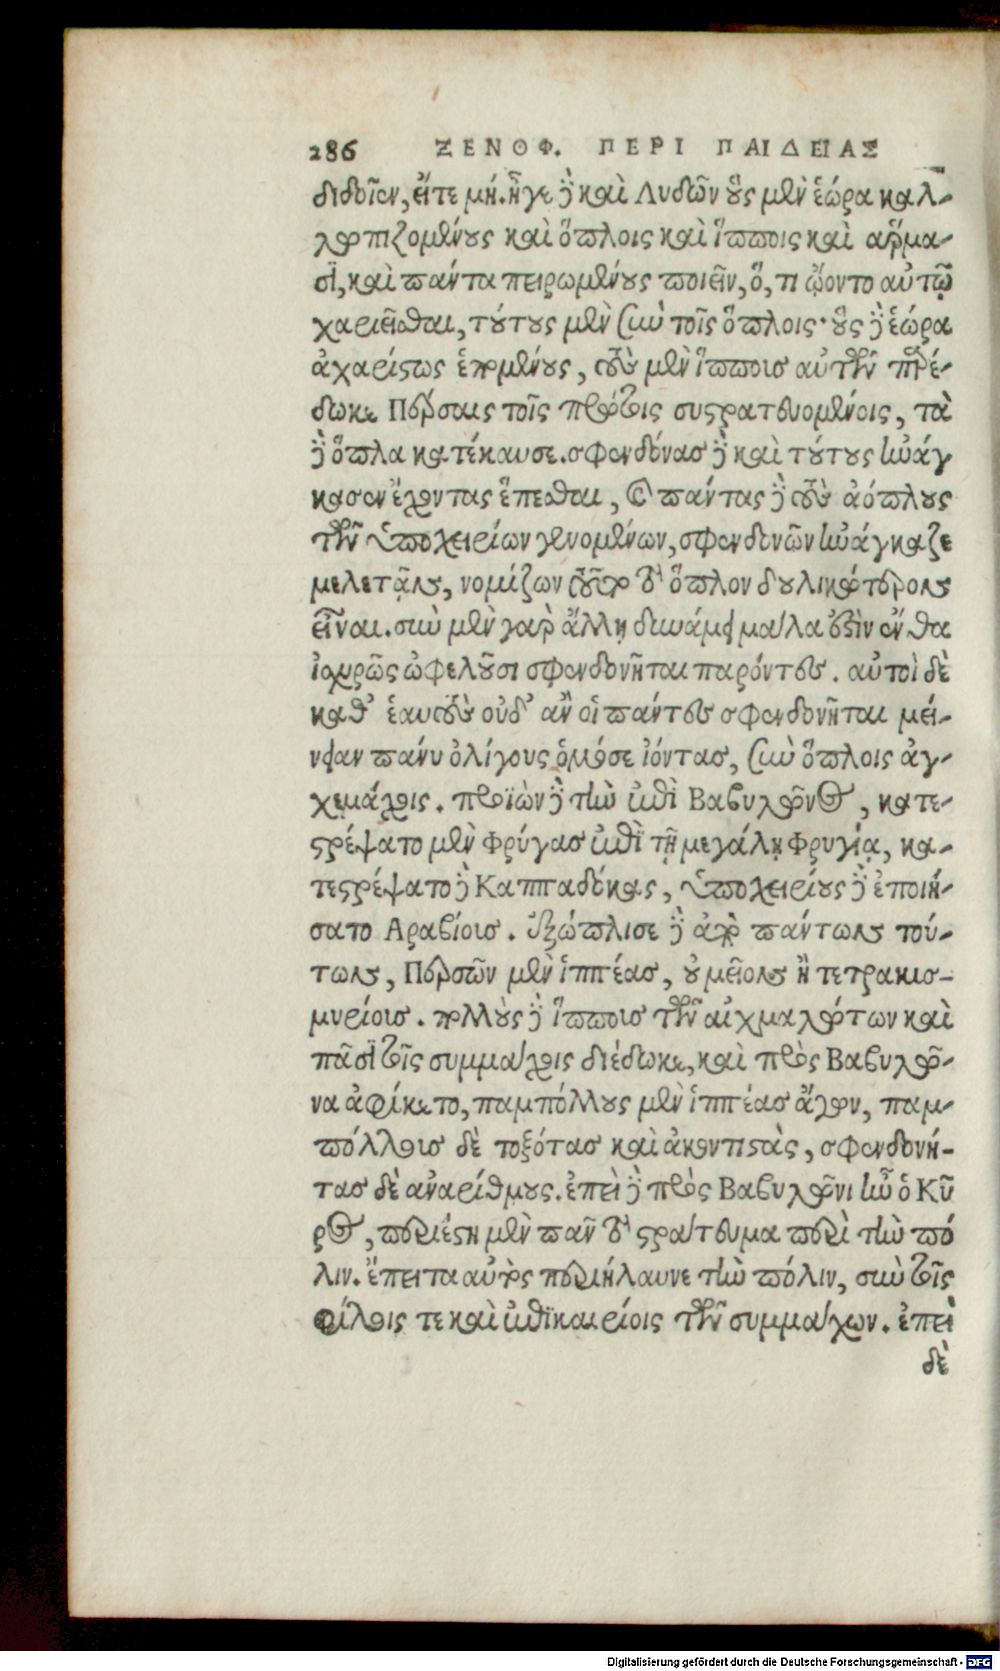 286 ΞΕΝΟΦ. ΠΕΡΙ ΠΑΙΔΕΙΑΣ
διδοῖεν, εἴτε μή. ἦγε δὲ καὶ Λυδῶν οὓς μὲν ἑώρα καλ-
λωπιζομένους καὶ ὅπλοις καὶ ἵπποις καὶ ἅρμα-
σι, καὶ πάντα πειρωμένους ποιεῖν, ὅ, τι ᾤοντο αὐτῷ
χαριεῖσθαι, τούτους μὲν σὺν τοῖς ὅπλοις· οὓς δὲ ἑώρα
ἀχαρίστως ἑπομένους, τοὺς μὲν ἵππους αὐτῶν παρέ-
δωκε Πέρσαις τοῖς πρώτοις συστρατευομένοις, τὰ
δὲ ὅπλα κατέκαυσε. σφενδόνας δὲ καὶ τούτους ἠνάγ
κασεν ἔχοντας ἕπεσθαι, καὶ πάντας δὲ τοὺς ἀόπλους
τῶν ὑποχειρίων γενομένων, σφενδονᾶν ἠνάγκαζε
μελετᾷν, νομίζων τοῦτο τὸ ὅπλον δουλικώτερον
εἶναι. σὺν μὲν γὰρ ἄλλῃ δυνάμει μάλα ἐστὶν ἔνθα
ἰσχυρῶς ὠφελοῦσι σφενδονῆται παρόντες. αὐτοὶ δὲ
καθ' ἑαυτοὺς οὐδ' ἂν οἱ πάντες σφενδονῆται μεί-
νειαν πάνυ ὀλίγους ὁμόσε ἰόντας, σὺν ὅπλοις ἀγ-
χεμάχοις. προϊὼν δὲ τὴν ἐπὶ Βαβυλῶνος, κατε-
στρέψατο μὲν Φρύγας ἐπὶ τῇ μεγάλῃ Φρυγίᾳ, κα-
τεστρέψατο δὲ Καππαδόκας, ὑποχειρίους δὲ ἐποιή-
σατο Αραβίους. ἐξώπλισε δὲ ἀπὸ πάντων τού-
των, Περσῶν μὲν ἱππέας, οὐ μεῖον ἢ τετρακισ-
μυρίους. πολλοὺς δὲ ἵππους τῶν αἰχμαλώτων καὶ
πᾶσι τοῖς συμμάχοις διέδωκε, καὶ πρὸς Βαβυλῶ-
να ἀφίκετο, παμπόλλους μὲν ἱππέας ἄχων, παμ-
πόλλους δὲ τοξότας καὶ ἀκοντιστὰς, σφενδονή-
τας δὲ ἀναρίθμους. ἐπεὶ δὲ πρὸς Βαβυλῶνι ἦν ὁ Κῦ
ρος, περιέστη μὲν πᾶν τὸ στράτευμα περὶ τὴν πό
λιν. ἔπειτα αὐτὸς περιήλαυνε τὴν πόλιν, σὺν τοῖς
φίλοις τε καὶ ἐπικαιρίοις τῶν συμμάχων. ἐπεὶ
δὲ
Digitalisierung gefördert durch die Deutsche Forschungsgemeinschaft - DFG